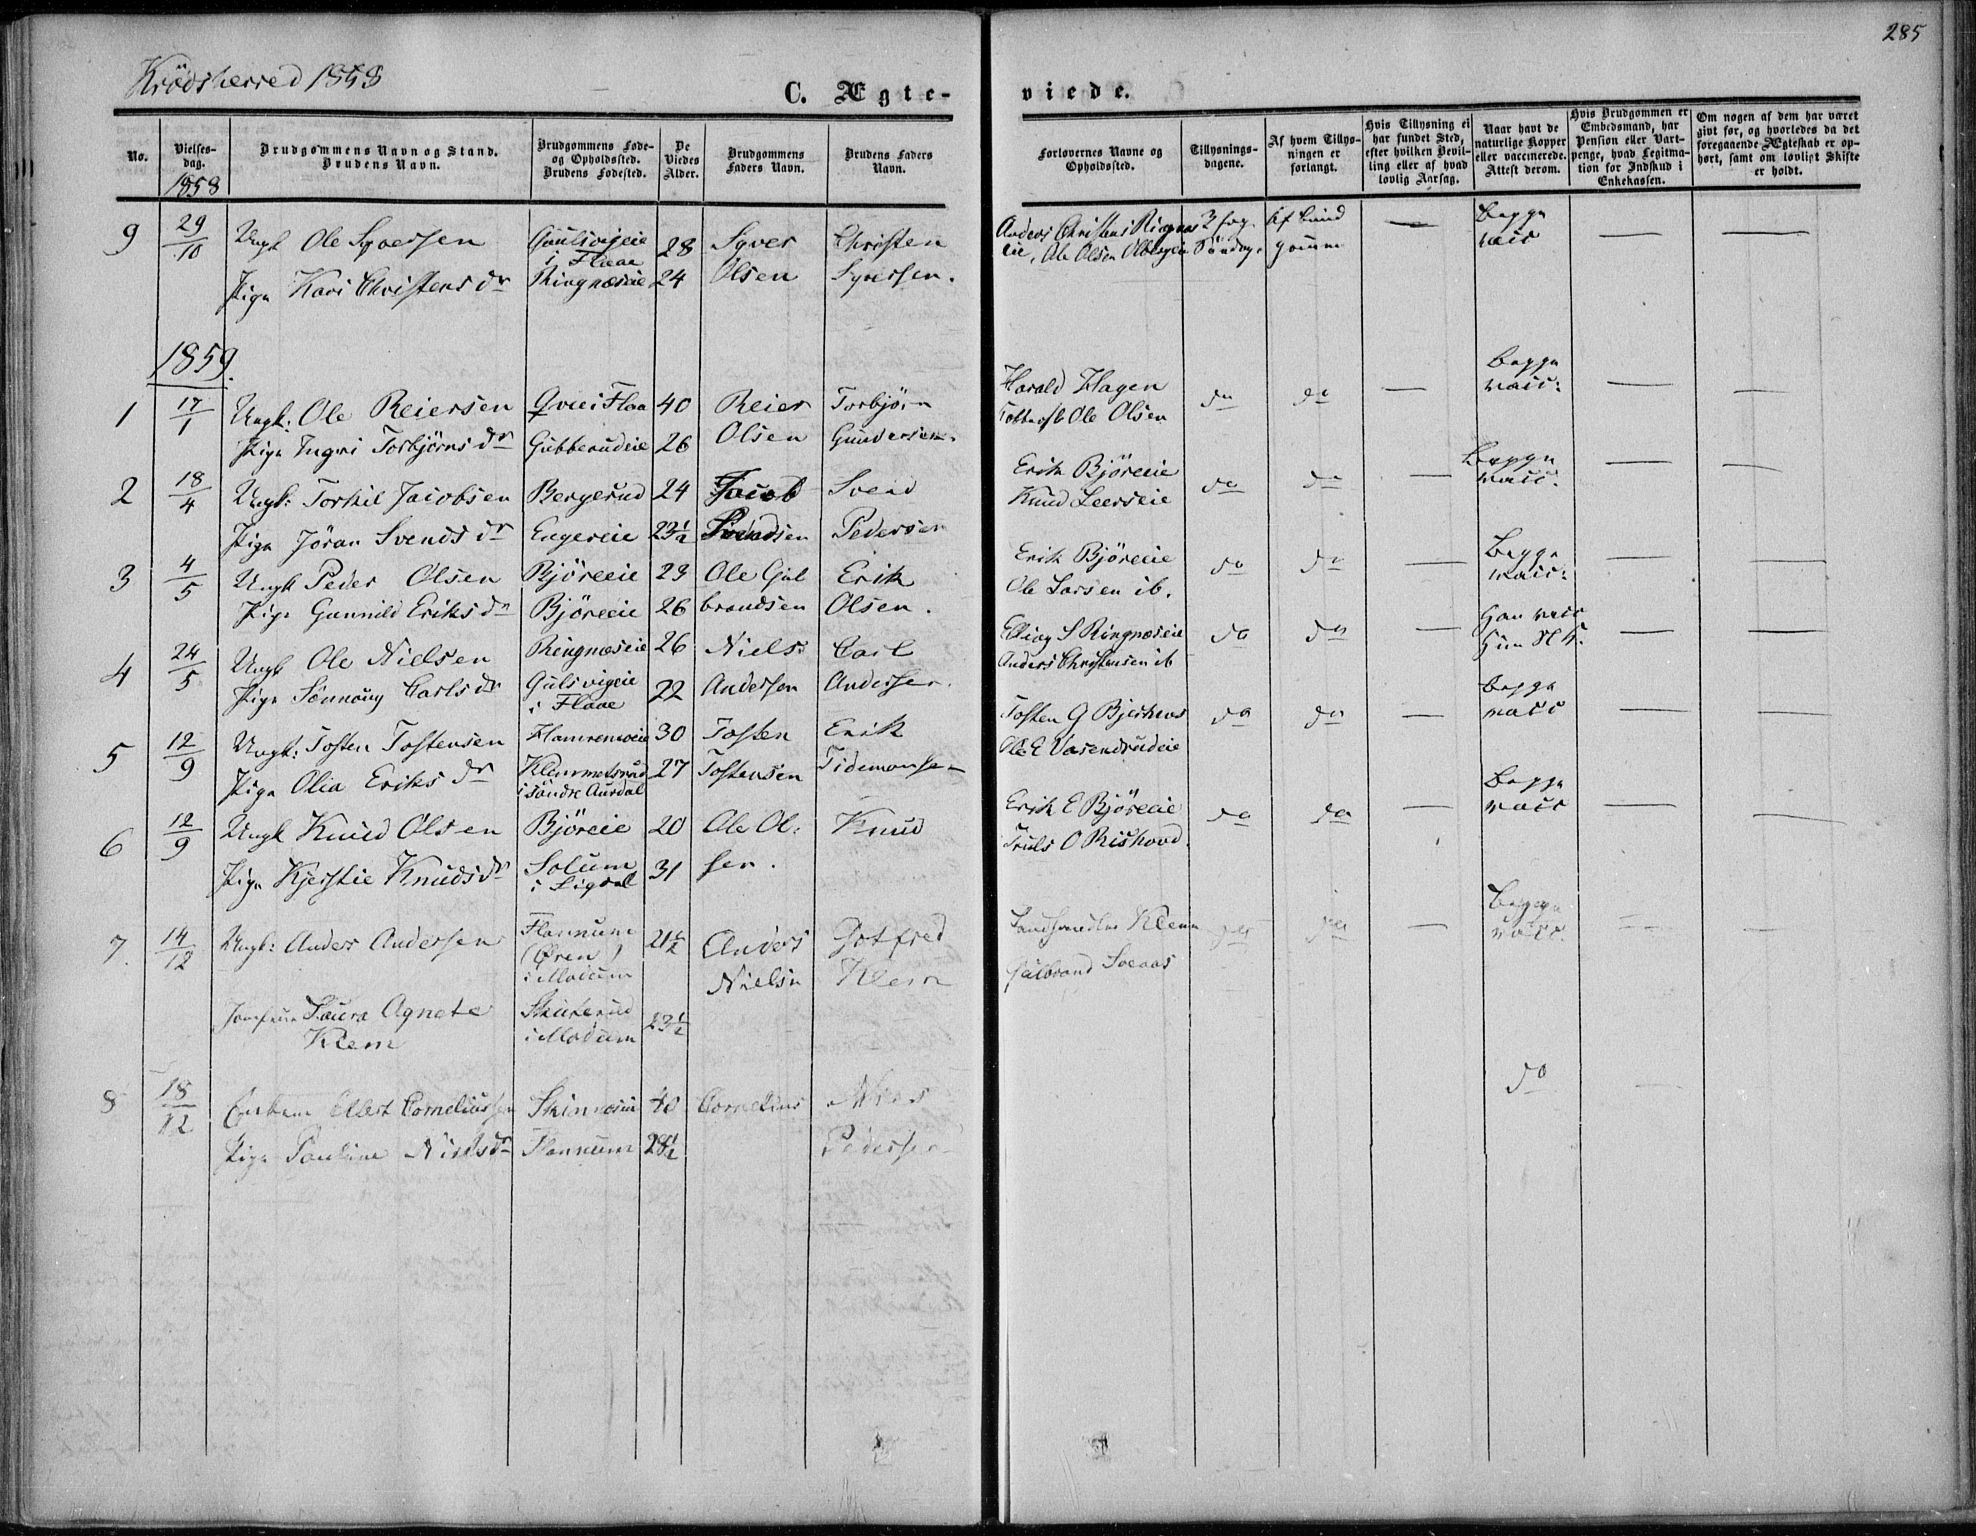 285
Krödsherred 1858
C. Ægte-
viede.
No.
Vielses-
dag.
1858
Brudgommens Navn og Stand.
Brudens Navn.
Brudgommens Føde-
og Opholdssted.
Brudens Fødested.
De
Viedes
Alder.
Brudgommens
Faders Navn.
Brudens Faders
Navn.
Forlovernes Navne og
Opholdssted.
Tillysnings-
dagene.
Af hvem Tillys-
ningen er
forlangt.
Hvis Tillysning ei
har fundet Sted,
efter hvilken Bevil-
ling eller af hvad
lovlig Aarsag.
Naar havt de
naturlige Kopper
eller vaccinerede.
Attest derom.
Hvis Brudgommen er
Embedsmand, har
Pension eller Vart-
penge, hvad Legitma-
tion for Indskud i
Enkekassen.
Om nogen af dem har været
givt før, og hvorledes da det
foregaaende Ægteskab er op-
hørt, samt om lovligt Skifte
er holdt.
9 29/10 Ungk Ole Syversen Gulsvigeie i Flaae 28 Syver Christen
Pige Kari Christens dr Ringnæseie 24 Olsen Syversen.
Anders Christens Ringnæs
eie, Ole Olsen Søndag. gommen
Begge vacc
1859.
1 17/1 Ungk: Ole Reiersen Qvie i Flaa 40 Reier Torbjørn
Pige Ingri Torbjørns dr Gubberudeie 26 Olsen Gundersen.
Harald Hagen do do Begge vacc:
Ole Olsen
2 18/4 Ungk: Torkil Jacobsen Bergerud 24 Jacob Svend
Pige Jöran Svends dr Engereie 23½ Svendsen Pedersen
Erik Bjøreeie do do Begge vacc.
Knud Leerseie
3 4/5 Ungk Peder Olsen Björeeie 23 Ole Gul Erik
Pige Gunnild Eriks dr Björeeie 26 brandsen Olsen.
Erik Björeeie do do Begge vacc:
Ole Larsen ib.
4 24/5 Ungk Ole Nielsen Ringnæseie 26 Niels Carl
Pige Sönnoug Carls dr Gulsvigeie i Flaae 22 Andersen Andersen.
Elling S Ringnæseie do do Han vacc
Anders Christensen ib Hun
5 12/9 Ungk: Tosten Tostensen Hamremoeie 30 Tosten Erik
Pige Olia Eriks dr Klemmetsrud i Søndre Aurdal 27 Tostensen Tidemansen
Tosten G Bjerknes do do Begge vacc
Ole E Vasendrudeie
6 12/9 Ungk Knud Olsen Björeie 20 Ole Ol: Knud
Pige Kjerstie Knuds dr Solum i Sigdal 31 sen.
Erik E Björeeie do do Begge vacc
Truls O Rishovd.
7. 14/12 Ungk: Anders Andersen Flannum (Øren) i Modum 21½ Anders Gotfred
Nielsen Klem
Jomfrue Laura Agnete Skuterud 23½
Klem i Modum
Landhandler Klem do do Begge vacc.
Gulbrand Sveaas
8 18/12 Enkem Ellert Corneliussen 40 Cornelius
Pige Pauline Niels dr Flannum 28½ Pedersen
do